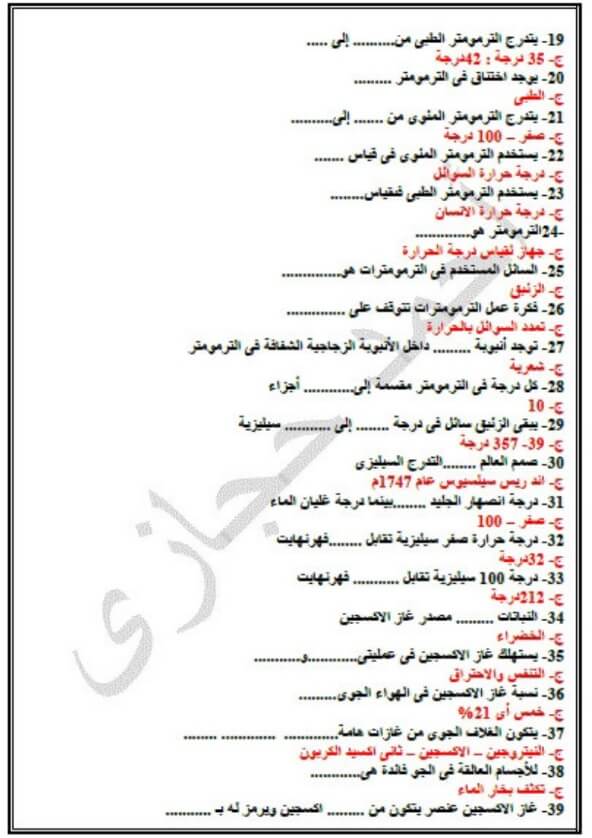 19- يتدرج الترمومتر الطبى من.......... إلى .....
ج- 35 درجة : 42درجة
20- يوجد اختناق فى الترمومتر .........
ج- الطبى
21- يتدرج الترمومتر المئوى من ....... إلى..........
ج- صفر – 100 درجة
22- يستخدم الترمومتر المئوى فى قياس .......
ج- درجة حرارة السوائل
23- يستخدم الترمومتر الطبى فىقياس........
ج- درجة حرارة الانسان
-24الترمومتر هو.............
ج- جهاز لقياس درجة الحرارة
25- السائل المستخدم فى الترمومترات هو..............
ج- الزئبق
26- فكرة عمل الترمومترات تتوقف على .............
ج- تمدد السوائل بالحرارة
27- توجد أنبوبة ......... داخل الأنبوبة الزجاجية الشفافة فى الترمومتر
ج- شعرية
28- كل درجة فى الترمومتر مقسمة إلى............ أجزاء
ج- 10
29- يبقى الزئبق سائل فى درجة ........ إلى ........... سيليزية
ج- 39- 357 درجة
30- صمم العالم ........التدرج السيليزى
ج- اند ريس سيلسيوس عام 1747م
31- درجة انصهار الجليد ........بينما درجة غليان الماء
ج- صفر – 100
32- درجة حرارة صفر سيليزية تقابل ........فهرنهايت
ج- 32درجة
33- درجة 100 سيليزية تقابل ........... فهرنهايت
ج- 212درجة
34- النباتات ......... مصدر غاز الاكسجين
ج- الخضراء
35- يستهلك غاز الاكسجين فى عمليتى............و...........
ج- التنفس والاحتراق
36- نسبة غاز الاكسجين فى الهواء الجوى.........
ج- خمس أى 21%
37- يتكون الغلاف الجوى من غازات هامة............. ............. ........
ج- النيتروجين – الاكسجين – ثانى اكسيد الكربون
38- للأجسام العالقة فى الجو فائدة هى............
ج- تكثف بخار الماء
39- غاز الاكسجين عنصر يتكون من ......... اكسجين ويرمز له بـ ...........
حجازى